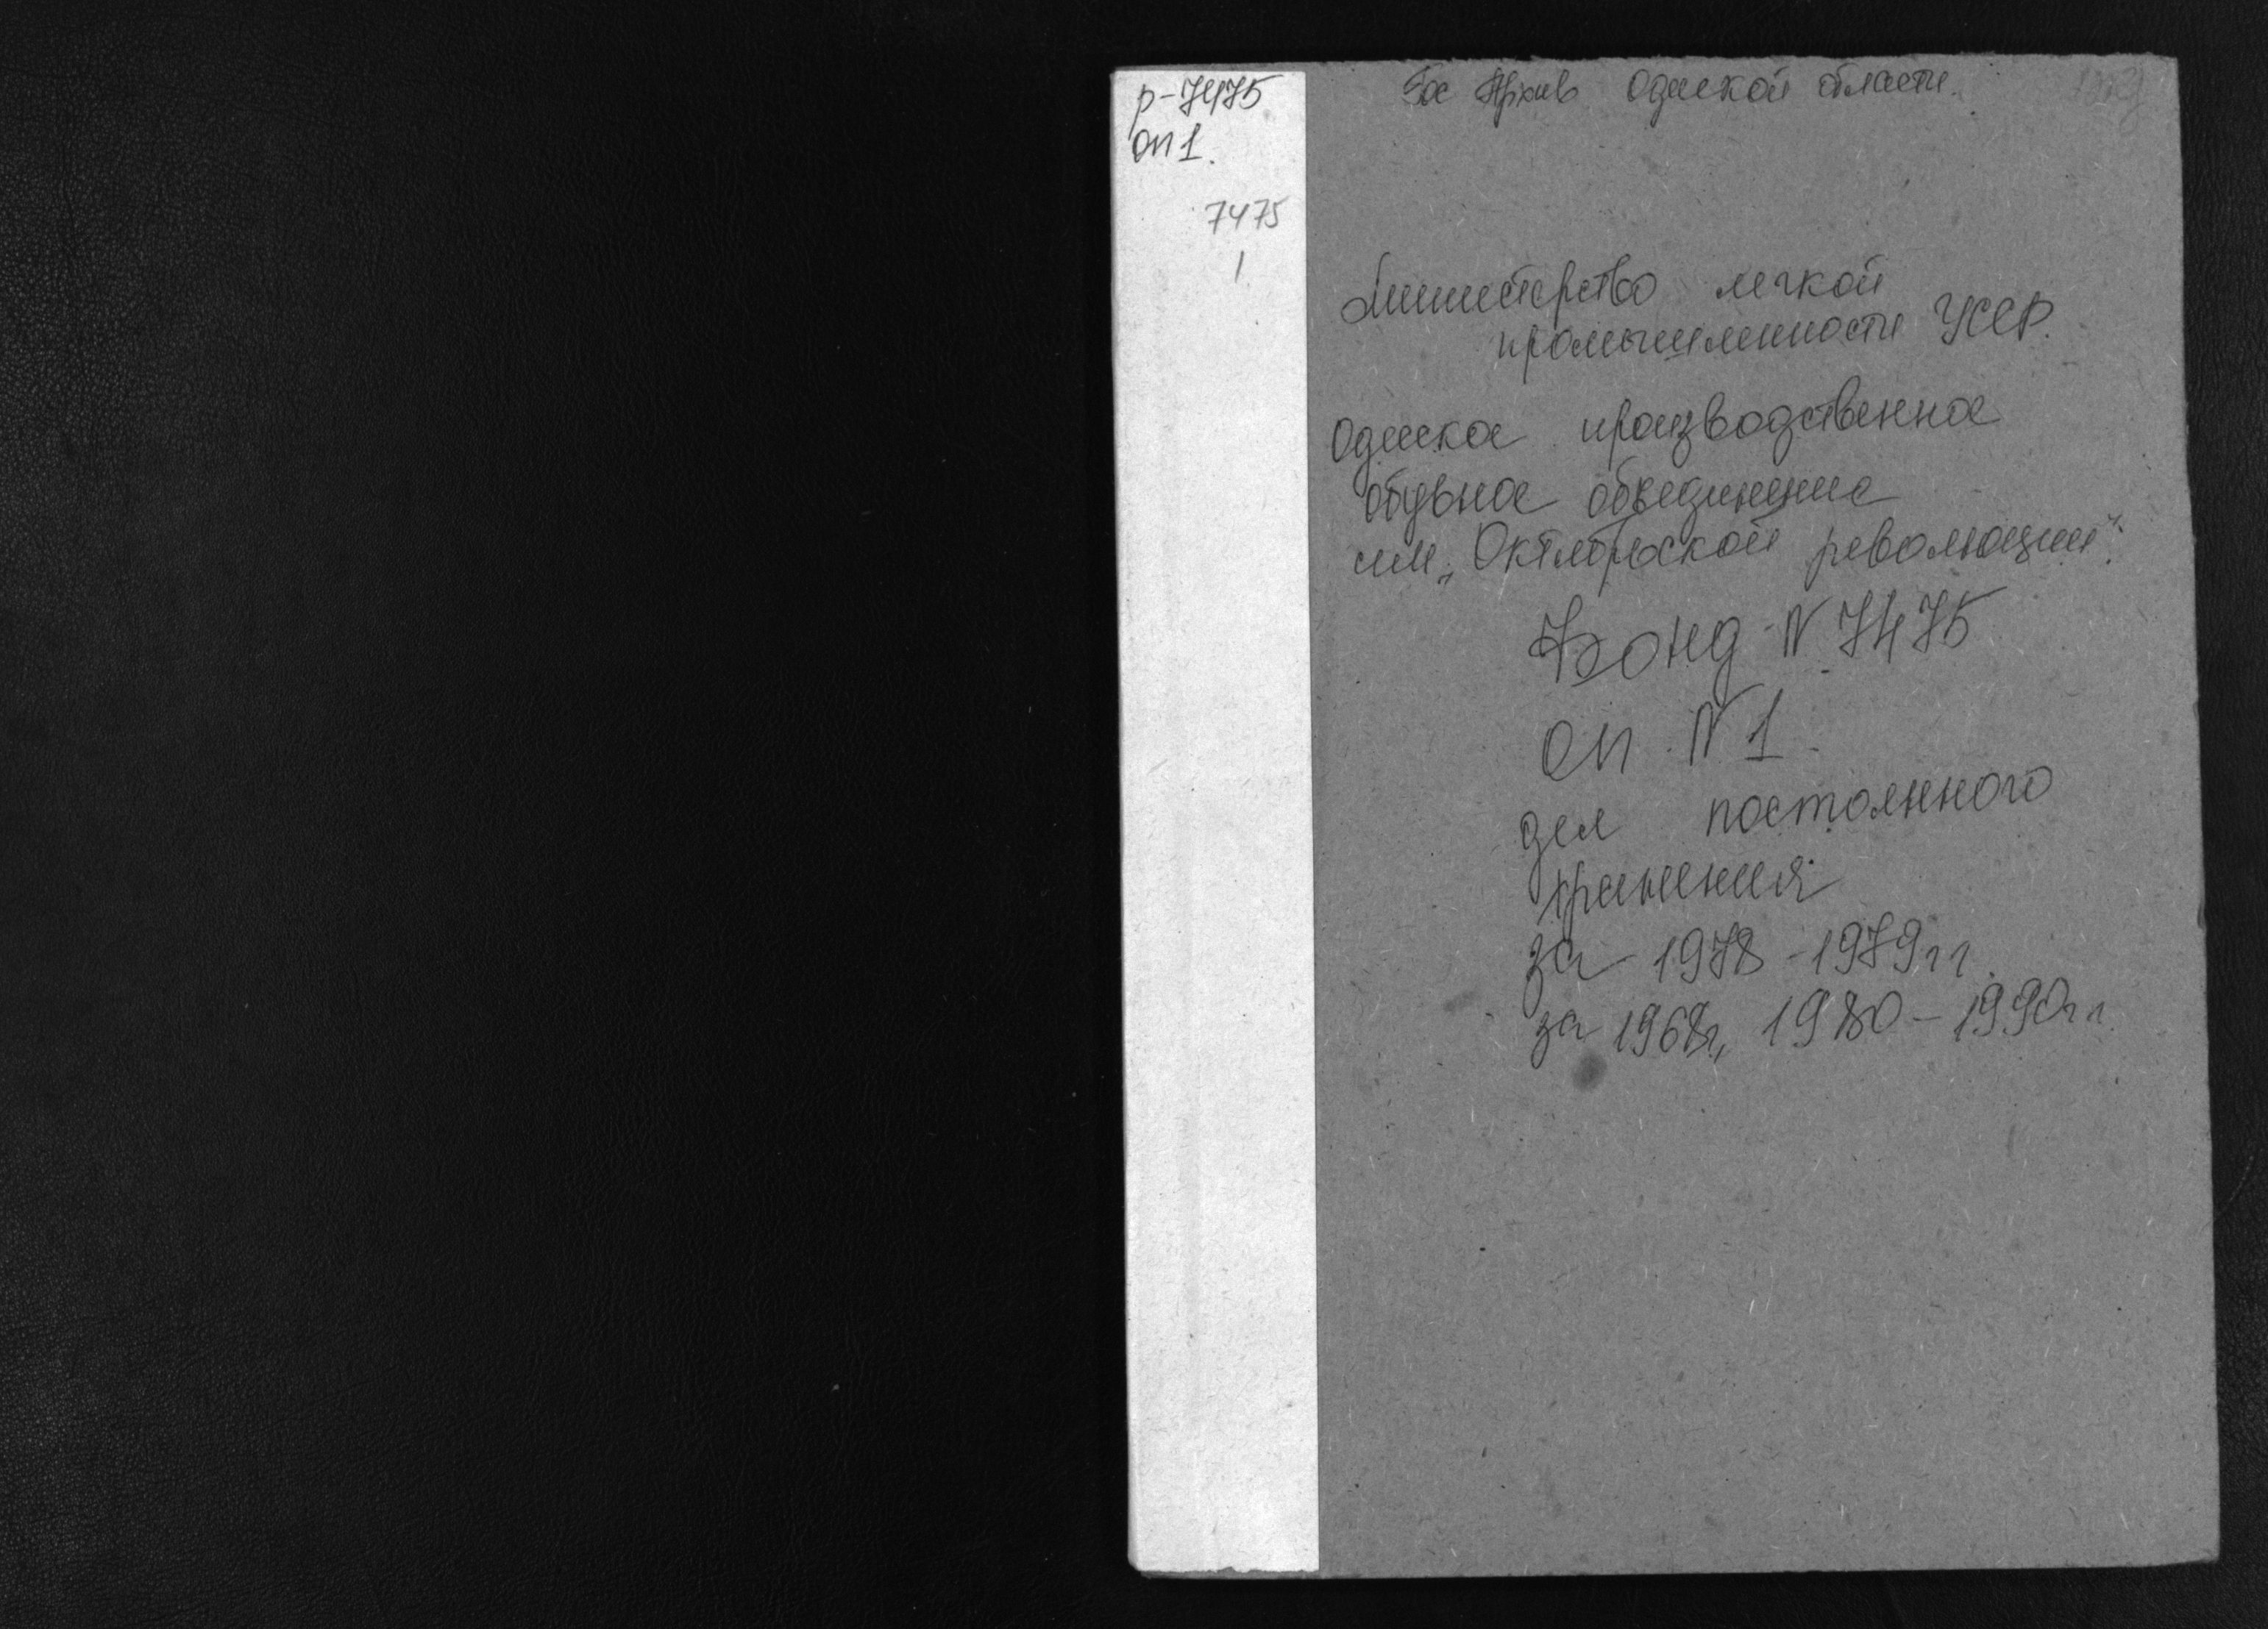 р-7475
оп 1.
7475
1
Гос Архив Одесской области.
Министерство легкой
промышленности УССР.
Одесское производственное
обувное объединение
им „Октябрьской революции".
Фонд N 7475
оп. N 1
дел постоянного
хранения
за 1978 - 1979 г г.
за 1968г, 1980 - 1990 г г.